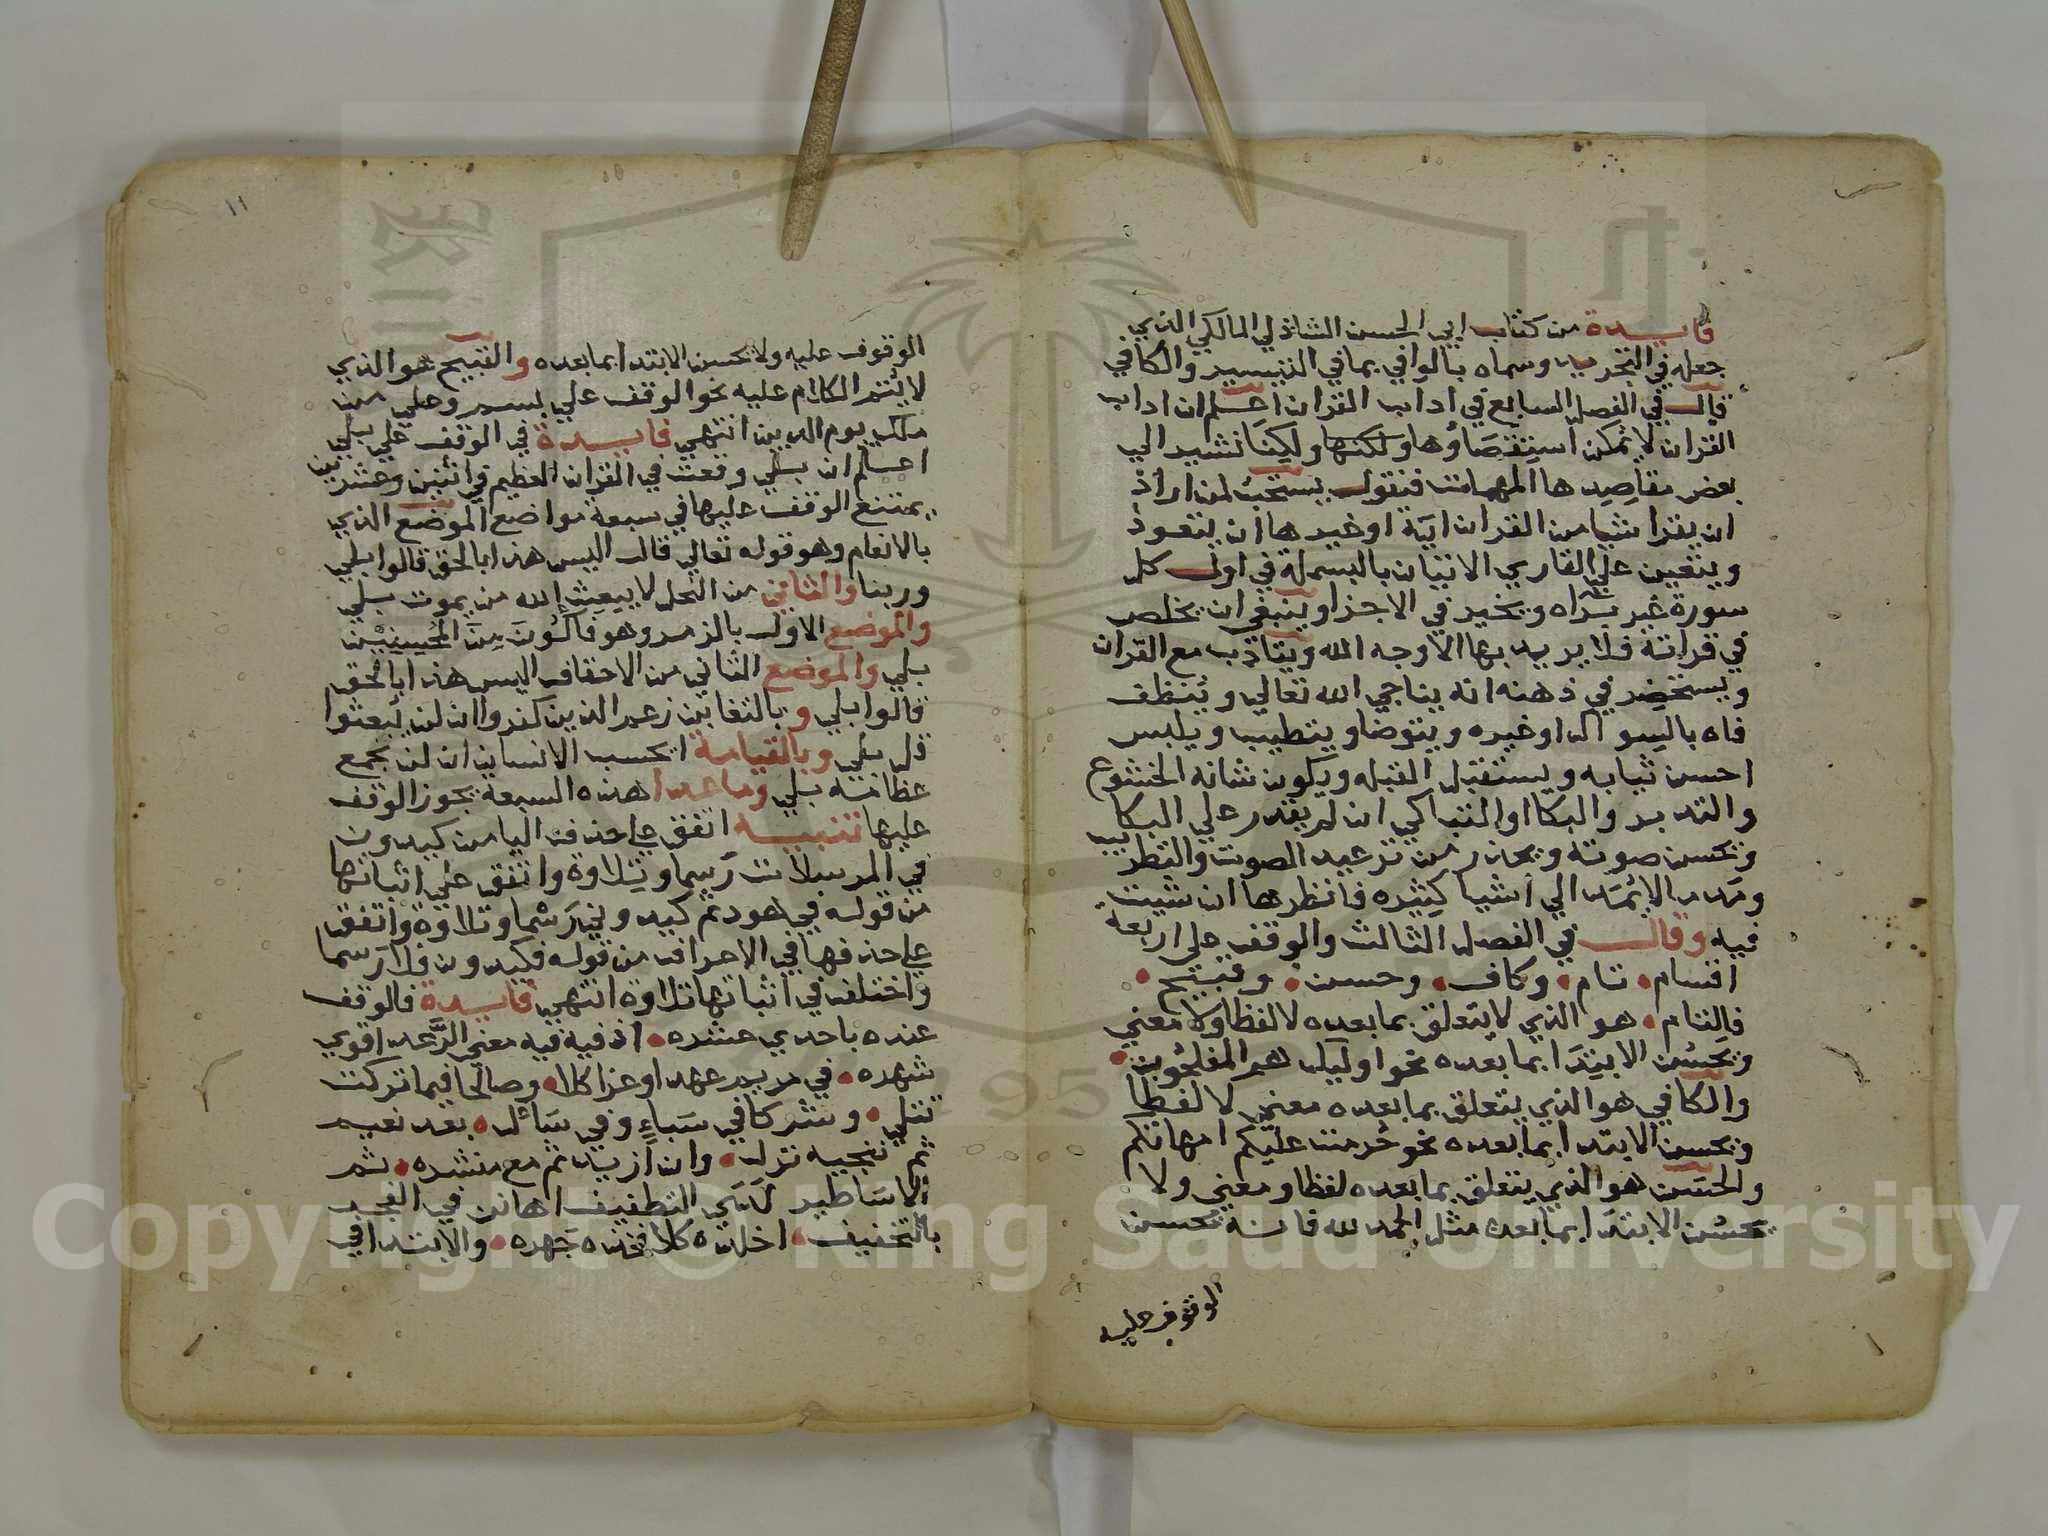 فايدة من كتاب ابي الحسن الشاذلي المالكي الذي
جعله في التجريد وسماه بالوافي بما في التيسير والكافي
قال في الفصل السابع في اداب القران اعلم ان اداب
القران لا يمكن استقصاوها ولكنها ولكننا نشير الي
بعض مقاصدها المهمات فنقول يستحب لمن اراد
ان يقرا شيا من القران اية او غيرها ان يتعوذ
ويتعين علي القاري الاتيان بالبسملة في اول كل
سورة غير براه ويخير في الاجزا وينبغي ان يخلص
في قراته فلا يريد بها الا وجه الله ويتادب مع القران
ويستحضر في ذهنه انه يناجي الله تعالي وينظف
فاه بالسواك او غيره ويتوضا ويتطيب ويلبس
احسن ثيابه ويستقبل القبله ويكون شانه الخشوع
والتدبر والبكا او التباكي ان لم يقدر علي البكا
ويحسن صوته ويحذر من ترعيد الصوت والتطريب
الائمه الي اشيا كثيره فانظرها ان شيت
فيه وقال في الفصل الثالث والوقف علي اربعة
اقسام تام وكاف وحسن وقبيح
فالتام هو الذي لا يتعلق بما بعده لا لفظا ولا معني
ويحسن الابتدا بما بعده نحو اوليك هم المفلحون
والكافي هو الذي يتعلق بما بعده معني لا لفظا
ويحسن الابتدا بما بعده نحو حرمت عليكم امهاتكم
والحسن هو الذي يتعلق بما بعده لفظا ومعني ولا
يحسن الابتدا بما بعده مثل الحمد لله فانه يحسن
الوقوف عليه
١١
الوقوف عليه ولا يحسن الابتدا بما بعده والقبيح هو الذي
لا يتم الكلام عليه نحو الوقف علي بسم وعلي من
ملك يوم الدين انتهي فايدة في الوقف علي بلي
اعلم ان بلي وقعت في القران العظيم في اثنين وعشرين
يمتنع الوقف عليها في سبعة مواضع الموضع الذي
بالانعام وهو قوله تعالي قال اليس هذا بالحق قالوا بلي
وربنا والثاني من النحل لا يبعث الله من يموت بلي
والموضع الاول بالزمر وهو فاكون من المحسنين
بلي والموضع الثاني من الاحقاف اليس هذا بالحق
قالوا بلي وبالتغابن زعم الذين كفروا ان لن يبعثوا
قل بلي وبالقيامة ايحسب الانسان ان لن نجمع
عظامه بلي وما عدا هذه السبعة يجوز الوقف
عليها تنبيه اتفق علي حذف اليا من كيدون
في المرسلات رسما وتلاوة واتفق علي اثباتها
من قوله في هود ثم كيدوني رسما وتلاوة واتفق
علي حذفها في الاعراف من قوله فكيدون فلا رسما
واختلف في اثباتها تلاوة انتهي فايدة فالوقف
عنده باحدي عشره اذ فيه فيه معني الردعه اقوي
شهده في مريم عهدا وعزا كلا وصالحا فيما تركت
تتلي وشركا في سباء وفي سائل بعد نعيم
ثم ننجيه نزل وان ازيد ثم مع منشره ثم
الاساطير لدي التطفيف اهانن في الفجر
بالتخفيف اخلده كلا فخذه جهره والابتدا في
Copyright © King Saud University
195